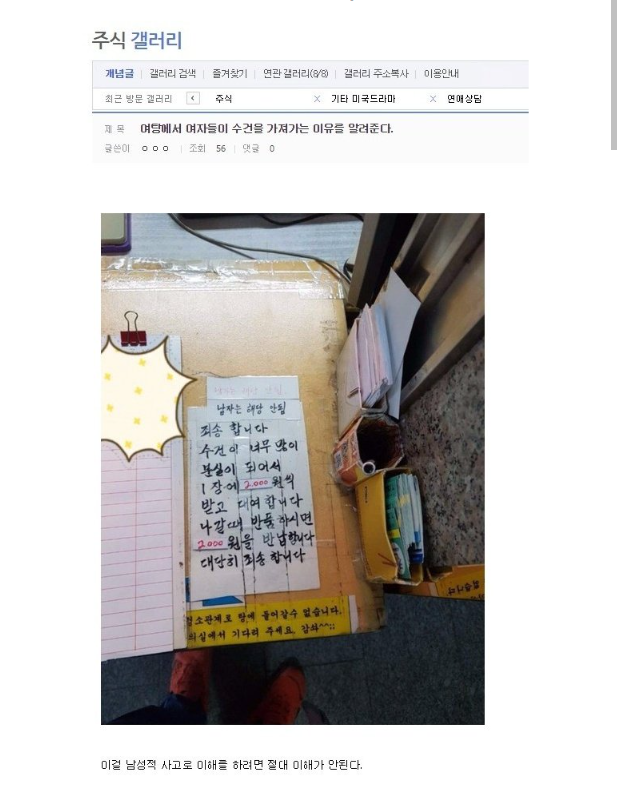 주식 갤러리
개념글 | 갤러리 검색 | 즐겨찾기 | 연관 갤러리(8/8) | 갤러리 주소복사 | 이용안내
최근 방문 갤러리 < 주식 X 기타 미국드라마 X 연애상담
제 목 여탕에서 여자들이 수건을 가져가는 이유를 알려준다.
글쓴이 ㅇ ㅇ ㅇ | 조회 56 | 댓글 0
남자는 해당 안됨
죄송 합니다
수건이 너무 많이
분실이 되어서
1장에 2,000원씩
받고 대여 합니다
나갈때 반품 하시면
2000 원을 반납합니다
대단히 죄송합니다
소관계로 탕에 들어갈수 없습니다.
의실에서 기다려 주세요. 감솨^^;;
이걸 남성적 사고로 이해를 하려면 절대 이해가 안된다.